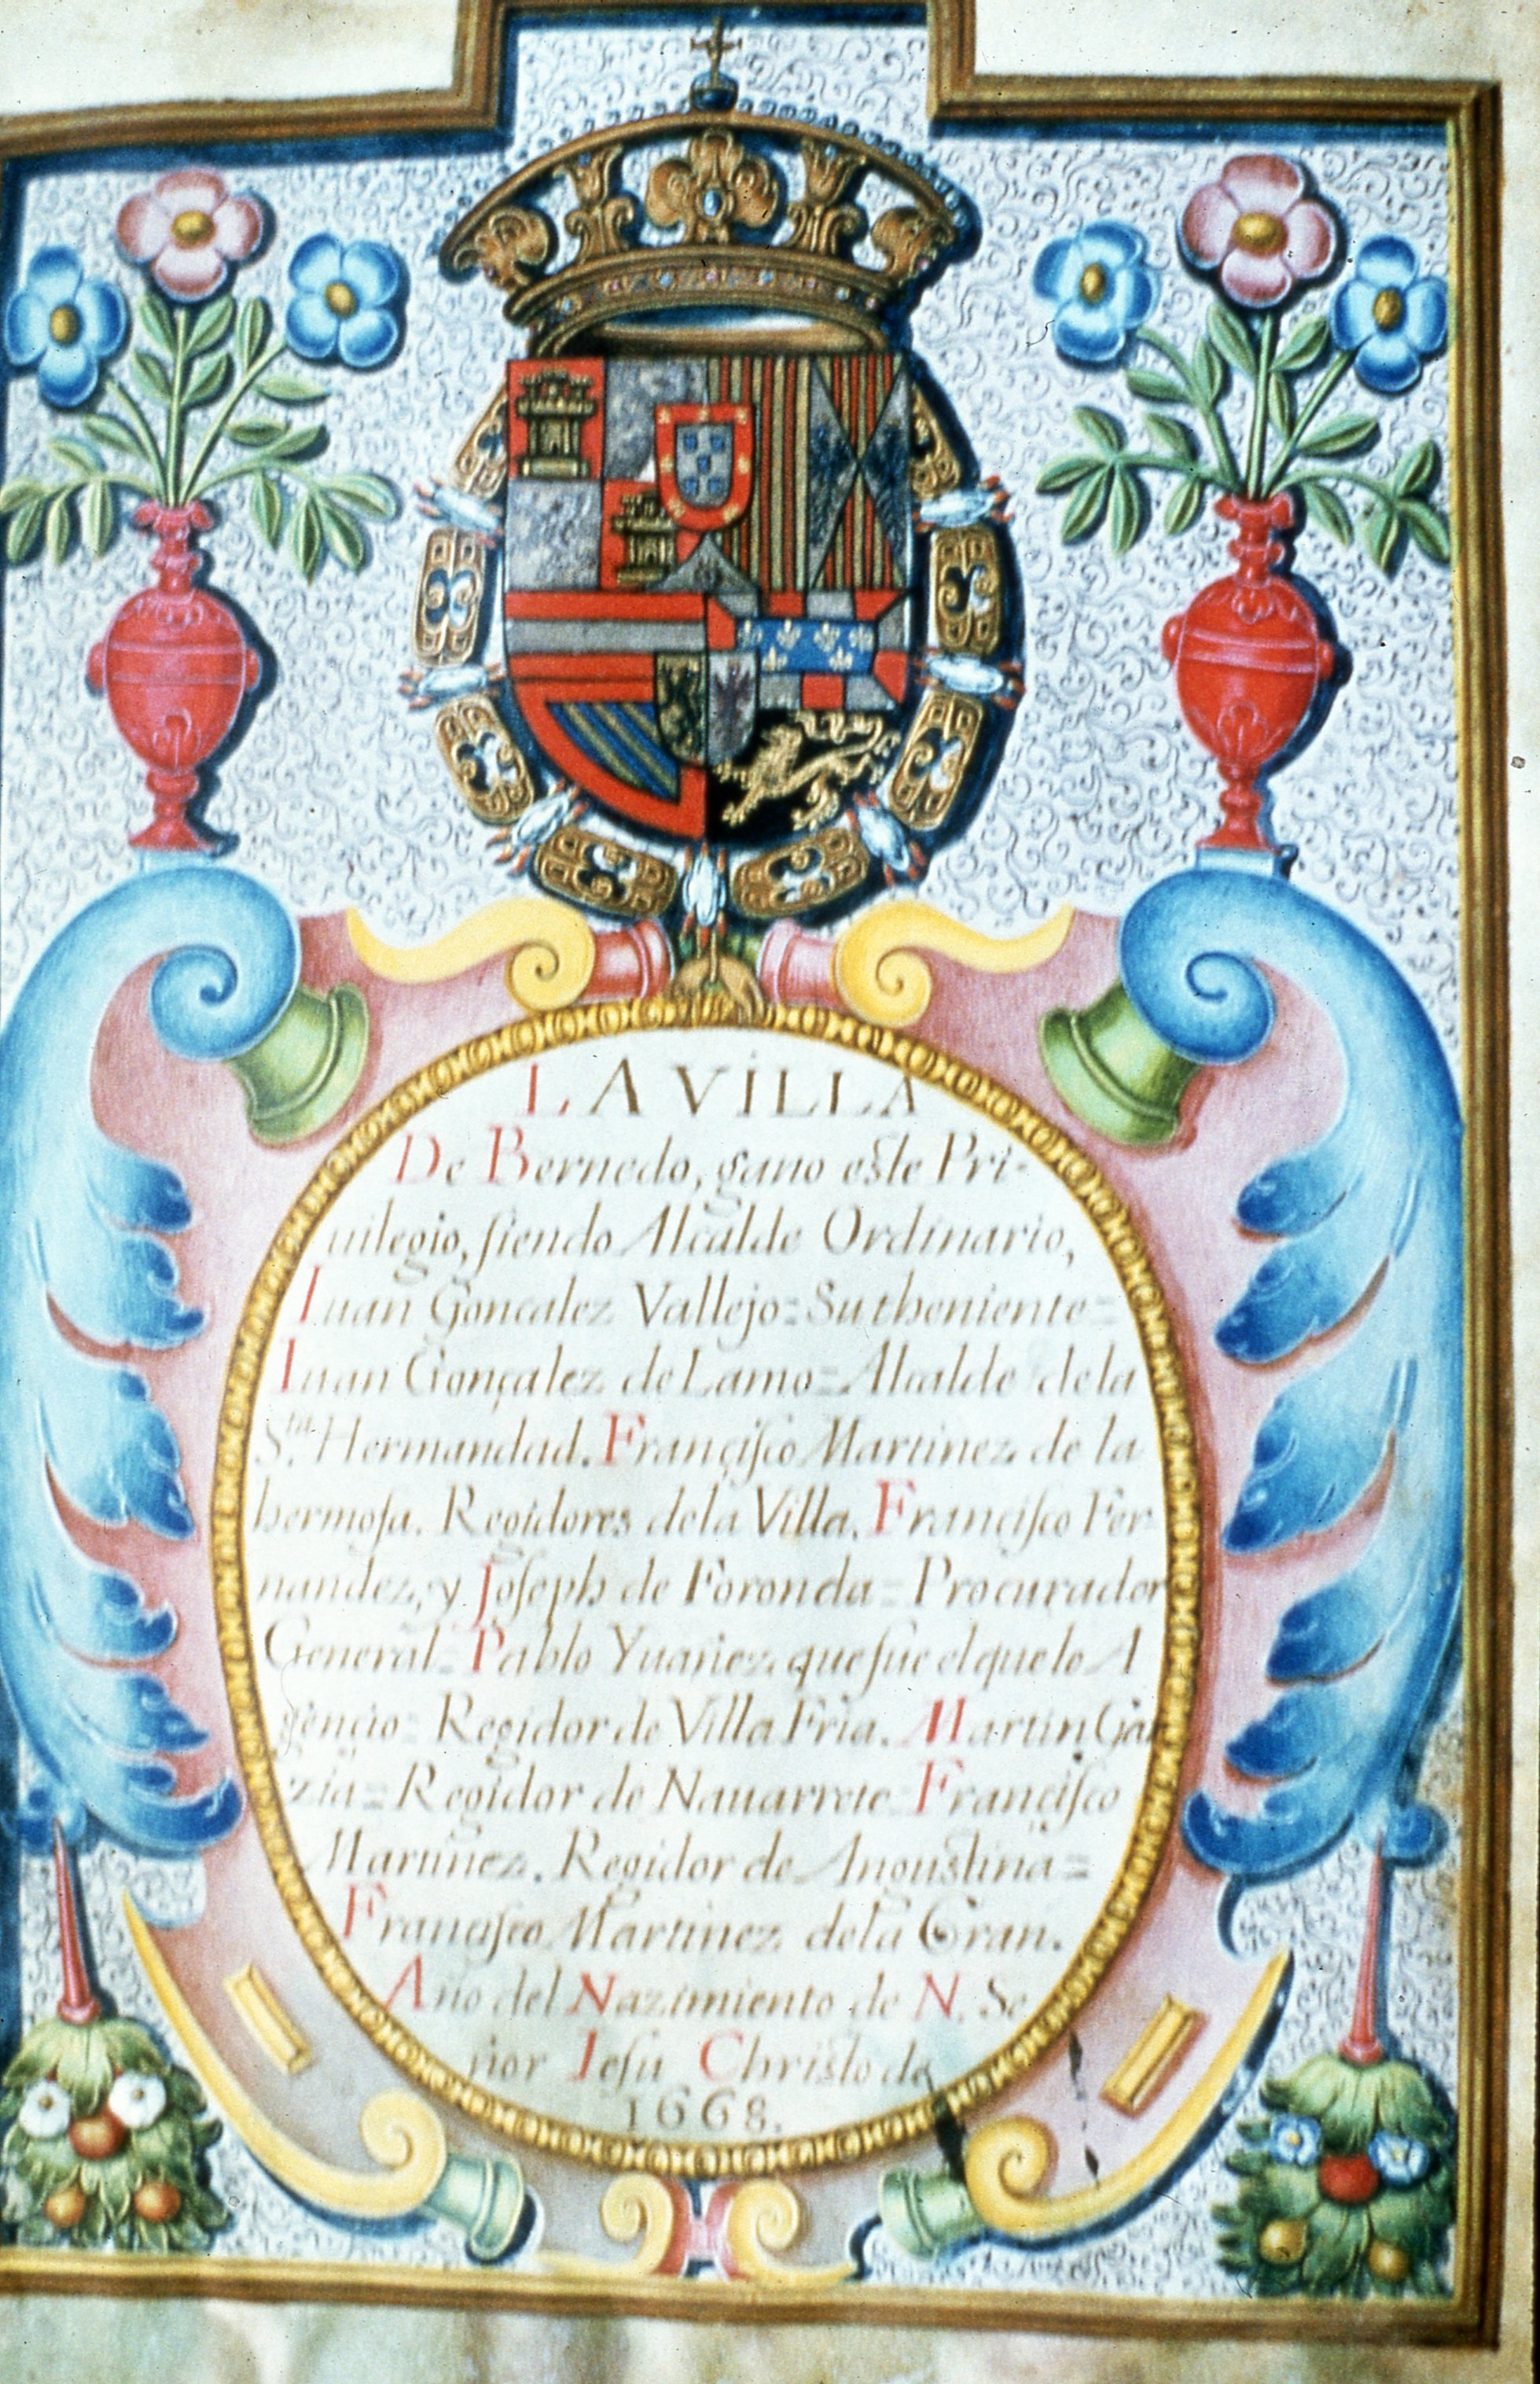 LA VILLA
De Bernedo, gano este Pri-
uilegio, siendo Alcalde Ordinario,
Iuan Goncalez Vallejo=Su theniente=
Iuan Gonçalez de Lamo=Alcalde de la
S.ta Hermandad. Françisco Martinez de la
hermosa. Regidores de la Villa. Francisco Fer-
nandez, y Joseph de Foronda=Procurador
General=Pablo Yuañez que fue el que lo A
gencio=Regidor de Villa Fria. Martin Gar
zia=Regidor de Nauarrete=Françisco
Martinez. Regidor de Angustina=
Francisco Martinez de la Gran.
Año del Nazimiento de N. Se
ñor Iesu Christo de
1668.